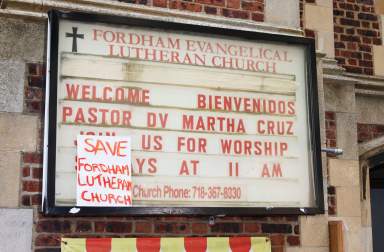 FORDHAM EVANGELICAL
LUTHERAN CHURCH
WELCOME BIENVENIDOS
PASTOR DV MARTHA CRUZ
JOIN US FOR WORSHIP
YS AT 11 AM
Church Phone: 718-367-8330
SAVE
FORDHAM
LUTHERAN
CHURCH